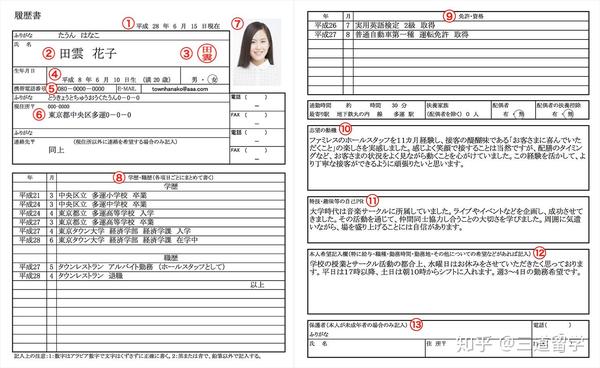 履歴書
① 平成 28 年 6 月 15 日現在
⑦
ふりがな たうん はなこ
氏 名
② 田雲 花子
③ 田雲
生年月日
④ 平成 8 年 6 月 10 日生 (満 20 歳)
男・女
携帯電話番号 ⑤ 080-0000-0000 E-MAIL townhanako@aaa.com
ふりがな とうきょうとちゅうおうくたうん0-0-0
電話 ( )
現住所〒 000-0000
⑥ 東京都中央区多運0-0-0
FAX ( )
ふりがな
電話 ( )
連絡先〒 (現住所以外に連絡を希望する場合のみ記入)
同上
FAX ( )
年 月 ⑧ 学歴・職歴(各項目ごとにまとめて書く)
学歴
平成21 3 中央区立 多運小学校 卒業
平成24 3 中央区立 多運中学校 卒業
平成24 4 東京都立 多運高等学校 入学
平成27 3 東京都立 多運高等学校 卒業
平成27 4 東京タウン大学 経済学部 経済学課 入学
平成28 6 東京タウン大学 経済学部 経済学課 在学中
職歴
平成27 5 タウンレストラン アルバイト勤務 (ホールスタッフとして)
平成28 4 タウンレストラン 退職
以上
記入上の注意:1:数字はアラビア数字で文字はくずさずに正確に書く。2:黒または青で、鉛筆以外で記入する。
年 月 ⑨ 免許・資格
平成26 7 実用英語検定 2級 取得
平成27 8 普通自動車第一種 運転免許 取得
通勤時間 約 時間 30 分
最寄り駅 地下鉄丸の内 線 多運 駅
扶養家族
(配偶者を除く) 0 人
配偶者
有・無
配偶者の扶養控除
有・無
志望の動機 ⑩
ファミレスのホールスタッフを11カ月経験し、接客の醍醐味である「お客さまに喜んでいた
だくこと」の楽しさを実感しました。感じよく笑顔で接することは当然ですが、配膳のタイミン
グなど、お客さまの状況をよく見ながら動くことを心がけていました。この経験を活かして、よ
り丁寧な接客ができるように頑張りたいと思います。
特技・趣味等の自己PR ⑪
大学時代は音楽サークルに所属していました。ライブやイベントなどを企画し、成功させて
きました。その活動を通じて、仲間同士協力し合うことの大切さを学びました。周囲に気遣
いながら、場を盛り上げることには自信があります。
本人希望記入欄(特に給与・職種・勤務時間・勤務地・その他についての希望などがあれば記入) ⑫
学校の授業とサークル活動の都合上、水曜日はお休みをさせていただきたく思っておりま
す。平日は17時以降、土日は朝10時からシフトに入れます。週3〜4日の勤務希望です。
保護者(本人が未成年者の場合のみ記入) ⑬
電話( )
ふりがな
氏 名 住 所〒
FAX( )
知乎 @三道留学